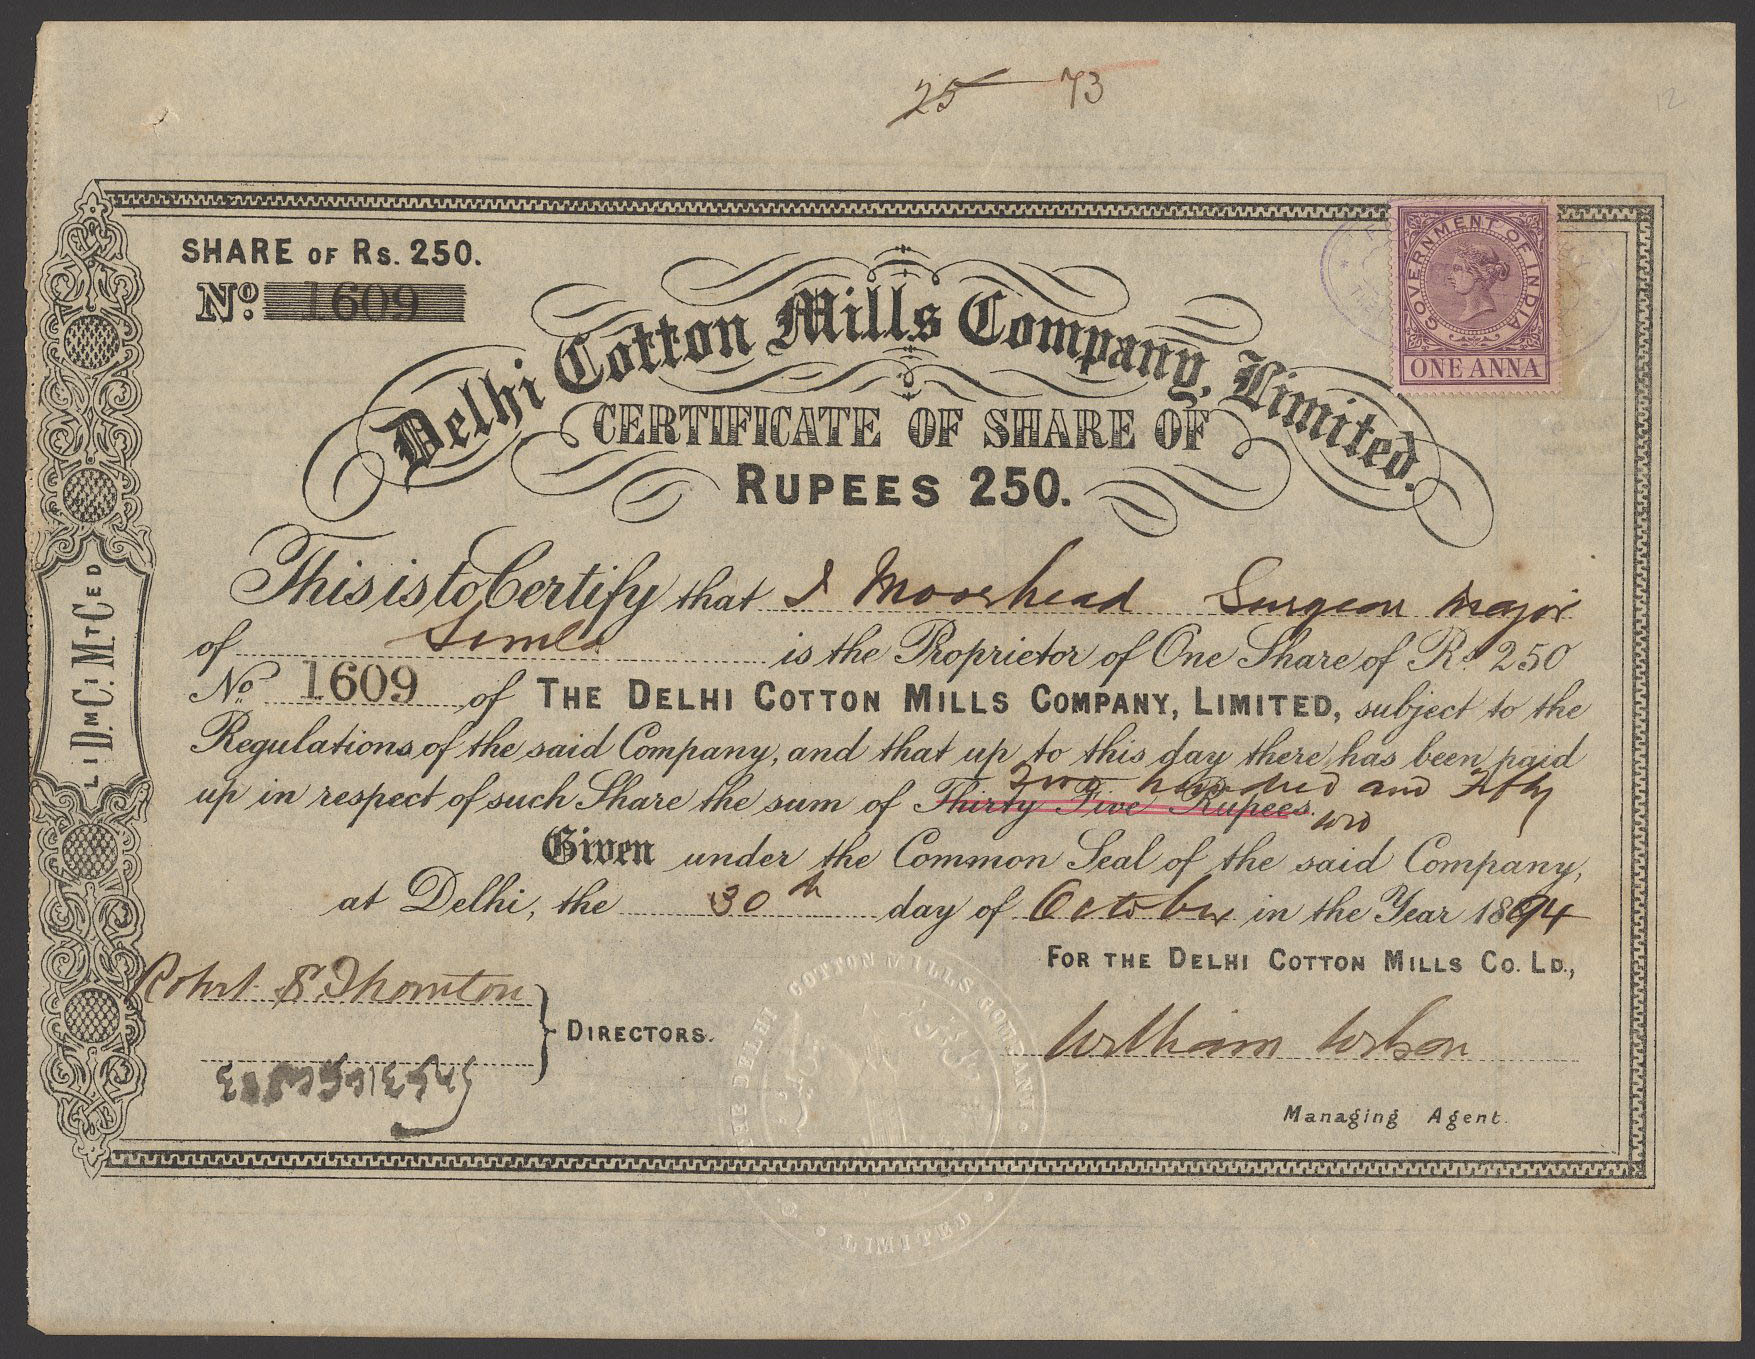 25 — 73
12
SHARE OF Rs. 250.
No. 1609
GOVERNMENT OF INDIA
ONE ANNA
Delhi Cotton Mills Company, Limited.
CERTIFICATE OF SHARE OF
RUPEES 250.
This is to Certify that J Moorhead Surgeon Major
of Simla is the Proprietor of One Share of Rs. 250
No. 1609 of THE DELHI COTTON MILLS COMPANY, LIMITED, subject to the
Regulations of the said Company, and that up to this day there has been paid
Two hundred and Fifty
up in respect of such Share the sum of Thirty Five Rupees.
Given under the Common Seal of the said Company,
at Delhi, the 30th day of October in the Year 1894
FOR THE DELHI COTTON MILLS CO. LD.,
Robert S. Thornton
DIRECTORS.
William Wilson
Managing Agent.
THE DELHI COTTON MILLS COMPANY
LIMITED
D. C. M. LIMITED